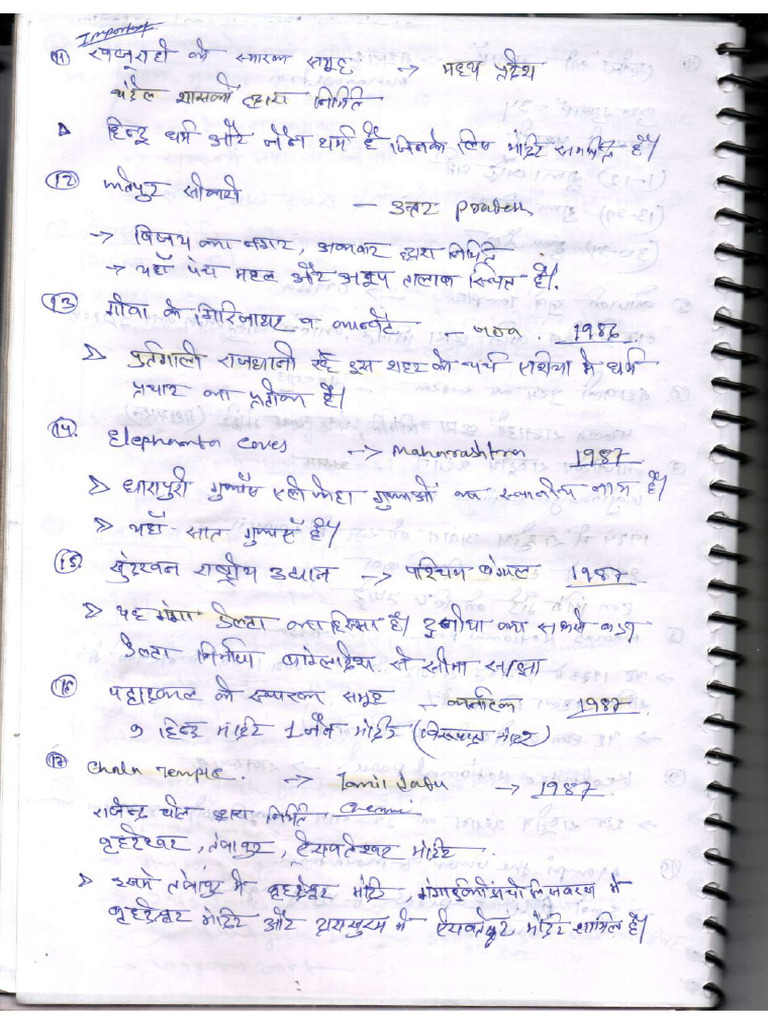 Important
(11) खजुराहो के स्मारक समूह → मध्य प्रदेश
चंदेल शासकों द्वारा निर्मित
▷ हिन्दू धर्म और जैन धर्म हैं जिनके लिए मंदिर समर्पित हैं।
(12) फतेपुर सीकरी — उत्तर Pradesh
→ विजय का नगर, अकबर द्वारा निर्मित
→ यहाँ पंच महल और अनूप तालाब स्थित है।
(13) गोवा के गिरिजाघर व कान्वेंट — गोवा. 1986
▷ पुर्तगाली राजधानी इस शहर के चर्च एशिया मे धर्म
प्रचार का प्रतीक है।
(14) Elephanta caves → Maharashtra 1987
▷ धारापुरी गुफाएँ एलीफेंटा गुफाओं का स्थानीय नाम है।
▷ यहाँ सात गुफाएँ है।
(15) सुंदरवन राष्ट्रीय उद्यान → पश्चिम बंगाल 1987
▷ यह गंगा डेल्टा का हिस्सा है। दुनीया का सबसे बड़ा
डेल्टा निर्माण बांग्लादेश से सीमा साझा
(16) पट्टाडकल के स्मारक समूह — कर्नाटक 1987
9 हिन्दू मंदिर 1 जैन मंदिर (विरुपाक्ष मंदिर)
(17) Chola Temple. → Tamil → 1987
राजेन्द्र चोल द्वारा निर्मित
बृहदेश्वर, तंजावुर, ऐरावतेश्वर मंदिर
▷ इसमे तंजावुर मे बृहदेश्वर मंदिर, गंगाईकोंडाचोलिसवरम मे
बृहदेश्वर मंदिर और दारासुरम मे ऐरावतेश्वर मंदिर शामिल है।